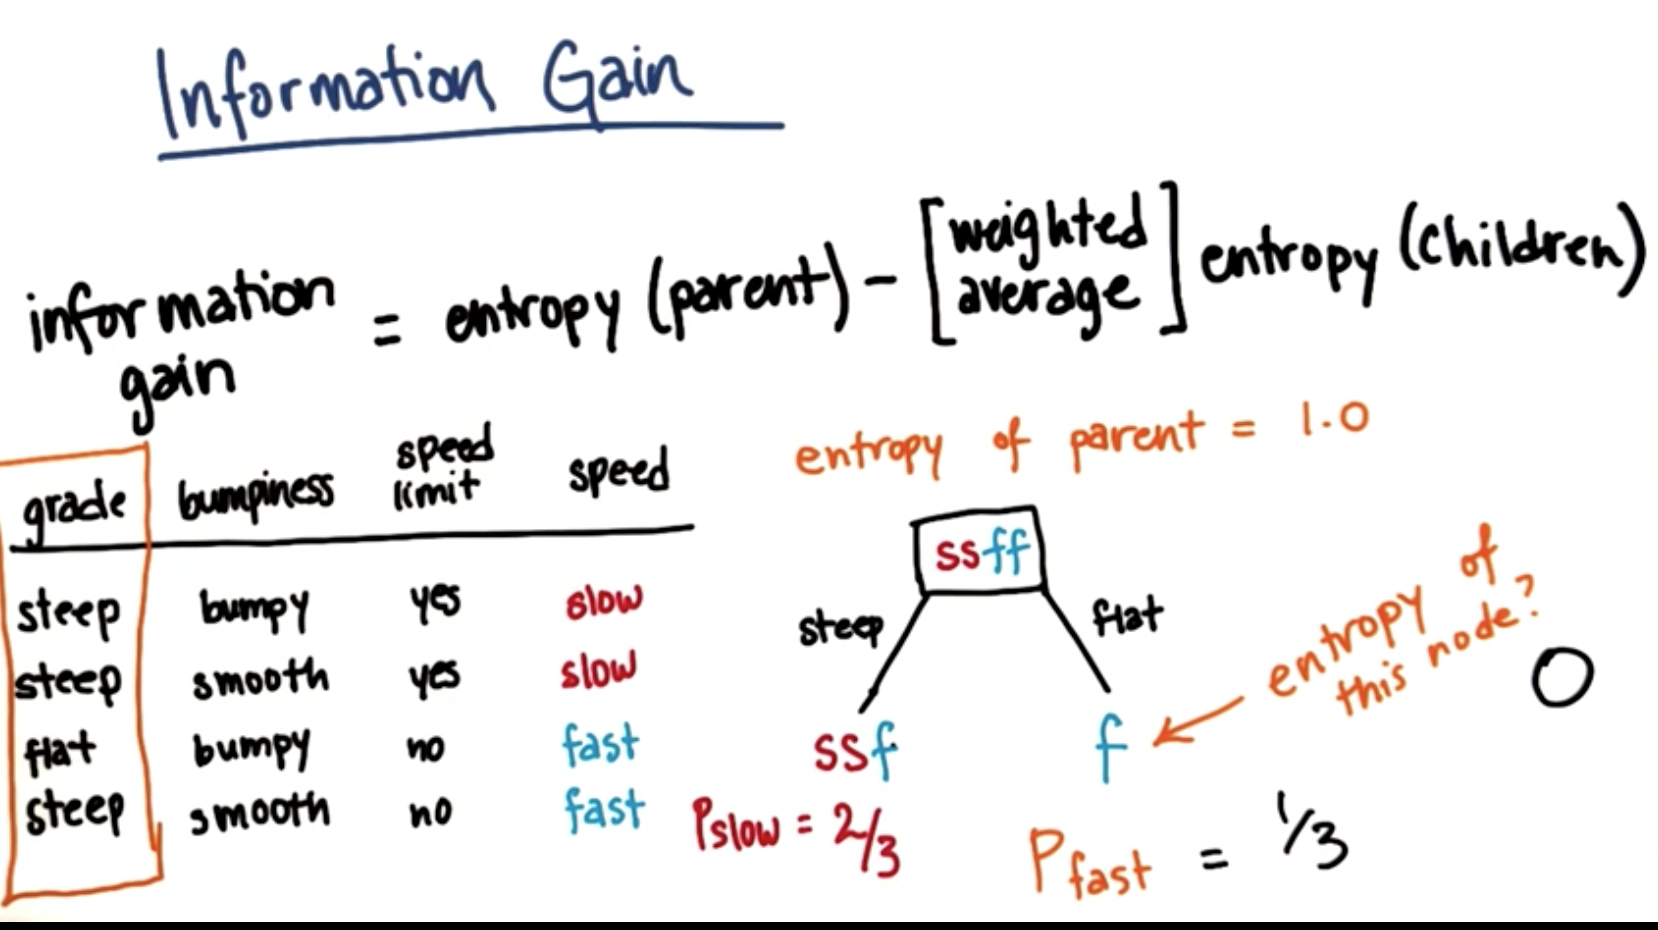 Information Gain
information gain = entropy (parent) - [weighted average] entropy (children)
grade bumpiness speed limit speed
steep bumpy yes slow
steep smooth yes slow
flat bumpy no fast
steep smooth no fast
entropy of parent = 1.0
ssff
steep flat
ssf f
entropy of this node? 0
Pslow = 2/3
Pfast = 1/3